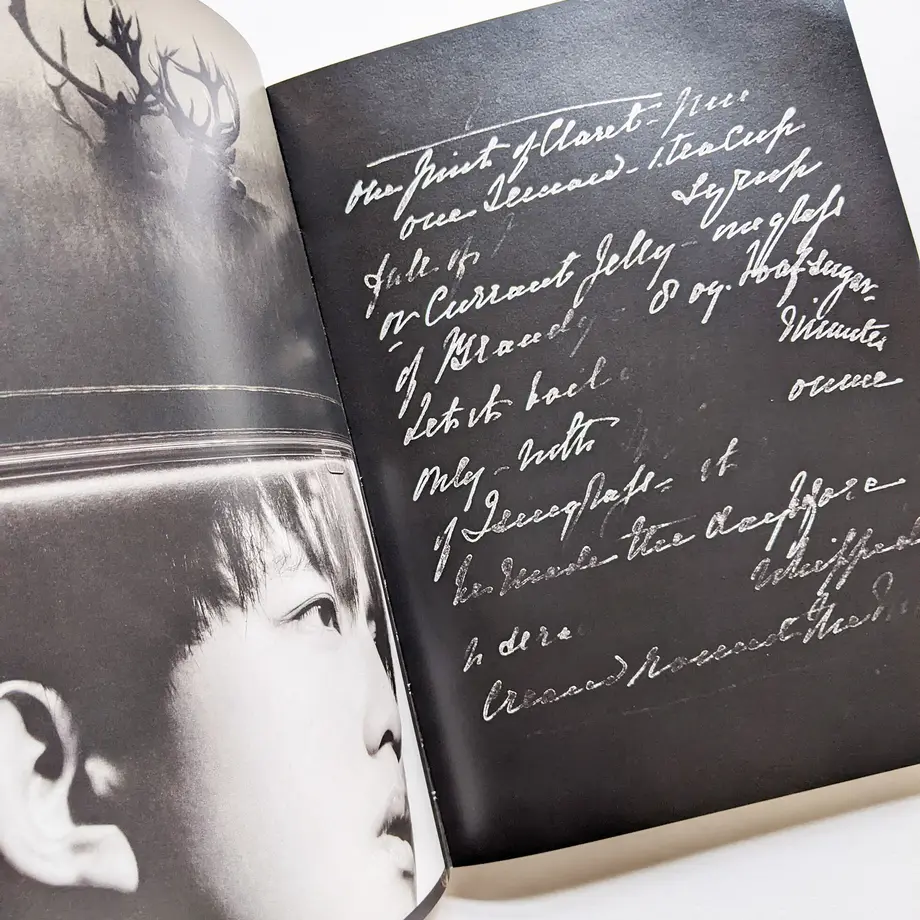 One pint of Claret - juice
one Lemon - 1 teacup
full of syrup
or Currant Jelly - one glass
of Brandy 8 oz. loaf sugar
Let it boil minutes
only - with ounce
of Isinglass - it
be made the day before
whipped
Cream round the